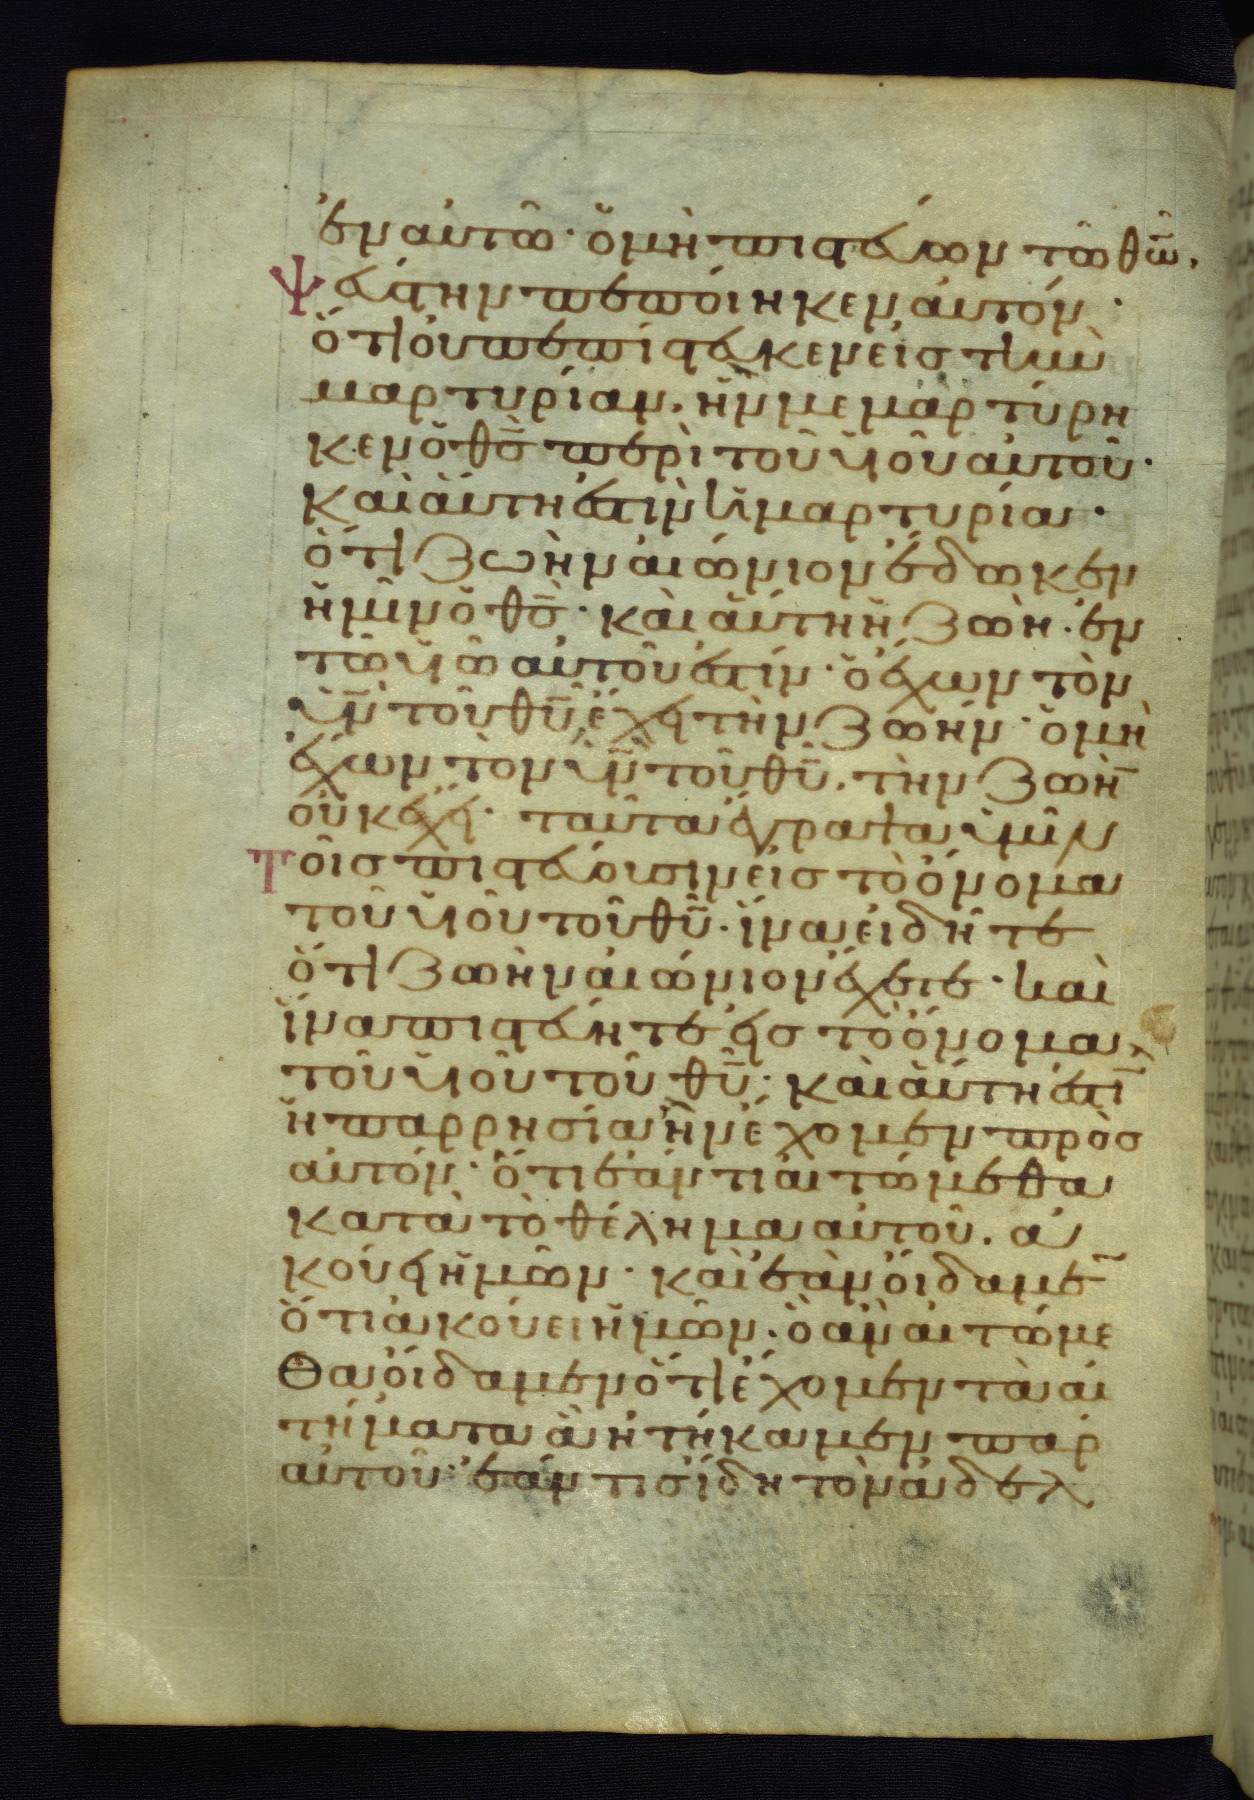 ἐν αὐτῶ· ὁ μὴ πιστεύων τῶ θω̅,
Ψεύστην πεποίηκεν αὐτόν·
ὅτι οὐ πεπίστευκεν εἰς τὴν
μαρτυρίαν, ἣν μεμαρτύρη
κεν ὁ θς̅ περὶ τοῦ υἱοῦ αὐτοῦ·
καὶ αὕτη ἐστὶν ἡ μαρτυρία·
ὅτι ζωὴν αἰώνιον ἔδωκεν
ἡμῖν ὁ θς̅· καὶ αὕτη ἡ ζωὴ· ἐν
τῶ υἱῶ αὐτοῦ ἐστίν· ὁ ἔχων τὸν
υν̅ τοῦ θυ̅, ἔχει τὴν ζωήν· ὁ μὴ
ἔχων τὸν υν̅ τοῦ θυ̅, τὴν ζωὴ̅
οὐκ ἔχει· ταῦτα ἔγραψα ὑμῖν
Τοῖς πιστεύουσιν εἰς τὸ ὄνομα
τοῦ υἱοῦ τοῦ θυ̅· ἵνα εἰδῆτε
ὅτι ζωὴν αἰώνιον ἔχετε· καὶ
ἵνα πιστεύητε εἰς τὸ ὄνομα
τοῦ υἱοῦ τοῦ θυ̅· καὶ αὕτη ἐστὶ̅
ἡ παρρησία ἣν ἔχομεν πρὸς
αὐτόν· ὅτι ἐάν τι αἰτώμεθα
κατὰ τὸ θέλημα αὐτοῦ. ἀ
κούει ἡμῶν· καὶ ἐὰν οἴδαμε̅
ὅτι ἀκούει ἡμῶν· ὃ ἂν αἰτώμε
θα οἴδαμεν ὅτι ἔχομεν τὰ αἰ
τήματα ἃ ἠτήκαμεν παρ
αὐτοῦ· ἐάν τις ἴδη τὸν ἀδελ